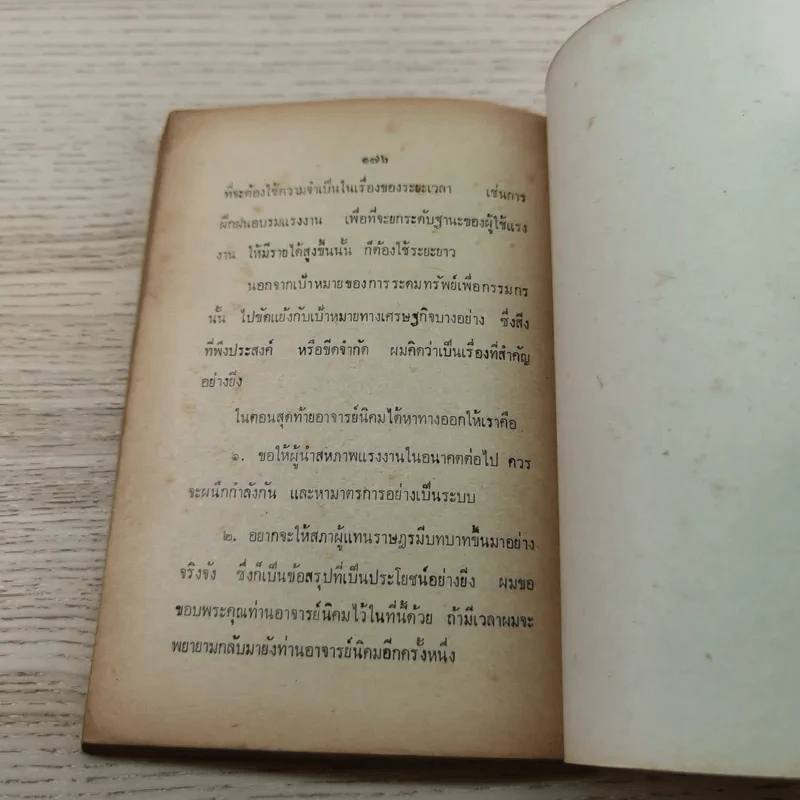 ๑๗๖
ที่จะต้องใช้ความจำเป็นในเรื่องของระยะเวลา เช่นการ
ฝึกฝนอบรมแรงงาน เพื่อที่จะยกระดับฐานะของผู้ใช้แรง
งาน ให้มีรายได้สูงขึ้นนั้น ก็ต้องใช้ระยะยาว
นอกจากเป้าหมายของการระดมทรัพย์เพื่อกรรมกร
นั้น ไปขัดแย้งกับเป้าหมายทางเศรษฐกิจบางอย่าง ซึ่งสิ่ง
ที่พึงประสงค์ หรือขีดจำกัด ผมคิดว่าเป็นเรื่องที่สำคัญ
อย่างยิ่ง
ในตอนสุดท้ายอาจารย์นิคมได้หาทางออกให้เราคือ
๑. ขอให้ผู้นำสหภาพแรงงานในอนาคตต่อไป ควร
จะผนึกกำลังกัน และหามาตรการอย่างเป็นระบบ
๒. อยากจะให้สภาผู้แทนราษฎรมีบทบาทขึ้นมาอย่าง
จริงจัง ซึ่งก็เป็นข้อสรุปที่เป็นประโยชน์อย่างยิ่ง ผมขอ
ขอบพระคุณท่านอาจารย์นิคมไว้ในที่นี้ด้วย ถ้ามีเวลาผมจะ
พยายามกลับมายังท่านอาจารย์นิคมอีกครั้งหนึ่ง